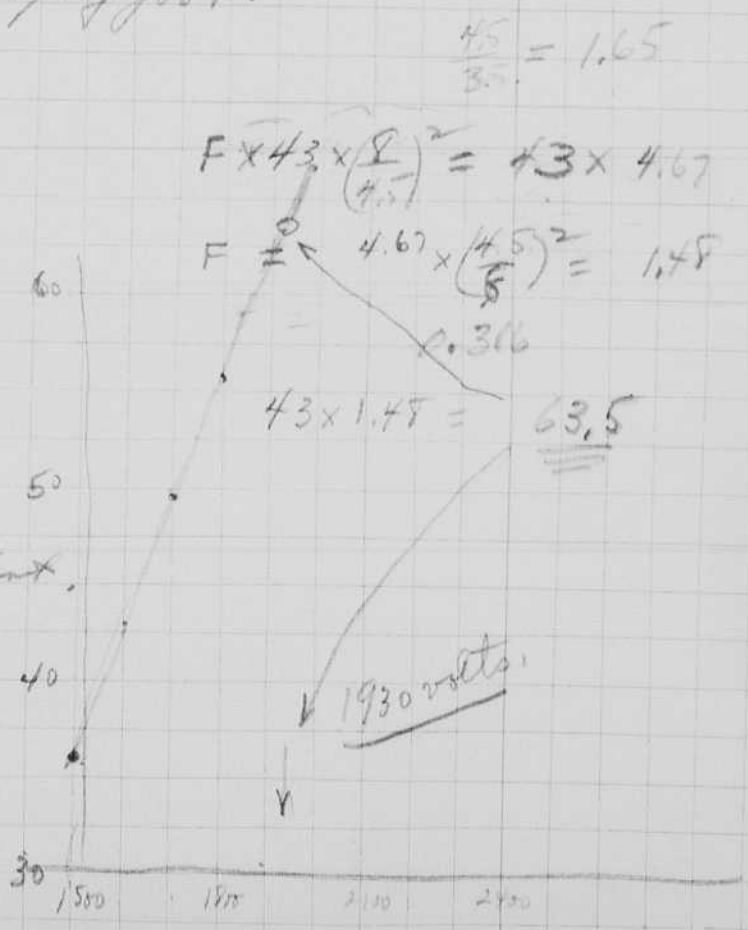 4.5/3.5 = 1.65
F × 43 × (8/4.5)² = 43 × 4.67
F = 4.67 × (4.5/8)² = 1.48
0.316
43 × 1.48 = 63.5
60
50
40
1930 volts.
30
1500 1800 2100 2400